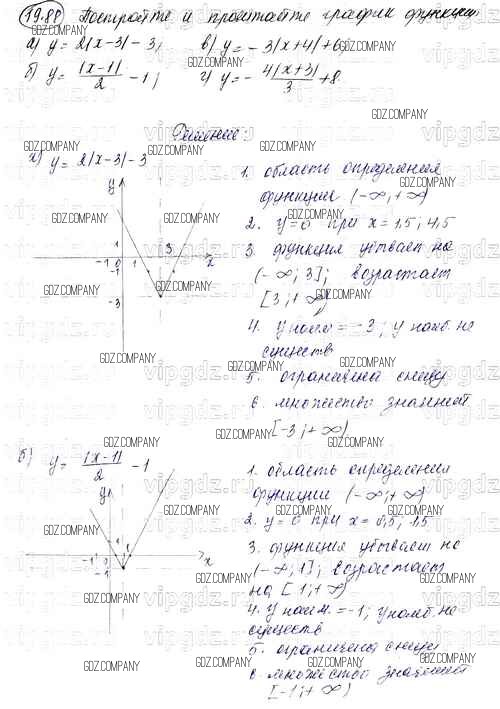 19.88 Постройте и прочитайте график функции
а) y = 2|x-3| - 3; в) y = -3|x+4| + 6;
б) y = |x-1|/2 - 1; г) y = - 4|x+3|/3 + 8
Решение:
а) y = 2|x-3| - 3
1. область определения
функции (-∞; +∞)
2. y=0 при x = 1,5; 4,5
3. функция убывает на
(-∞; 3]; возрастает
[3; +∞)
4. y наим = -3; y наиб. не
существ
5. ограничена снизу
6. множество значений
[-3; +∞)
y
1
-1 0 1 3 x
-1
-3
б) y = |x-1|/2 - 1
1. область определения
функции (-∞; +∞)
2. y=0 при x = 0,5; 1,5
3. функция убывает на
(-∞; 1]; возрастает
на [1; +∞)
4. y наим. = -1; y наиб. не
существ
5. ограничена снизу
6. множество значений
[-1; +∞)
y
1
-1 0 1 x
-1
GDZ.COMPANY
vipgdz.ru